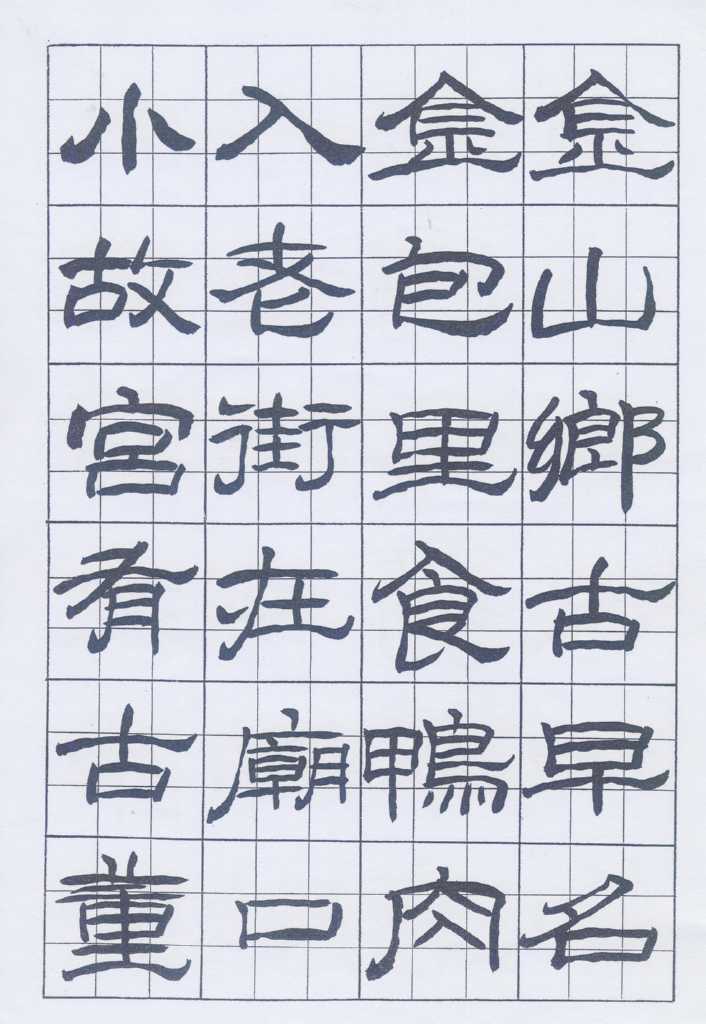 金山鄉古早名
金包里食鴨肉
入老街在廟口
小故宮有古董